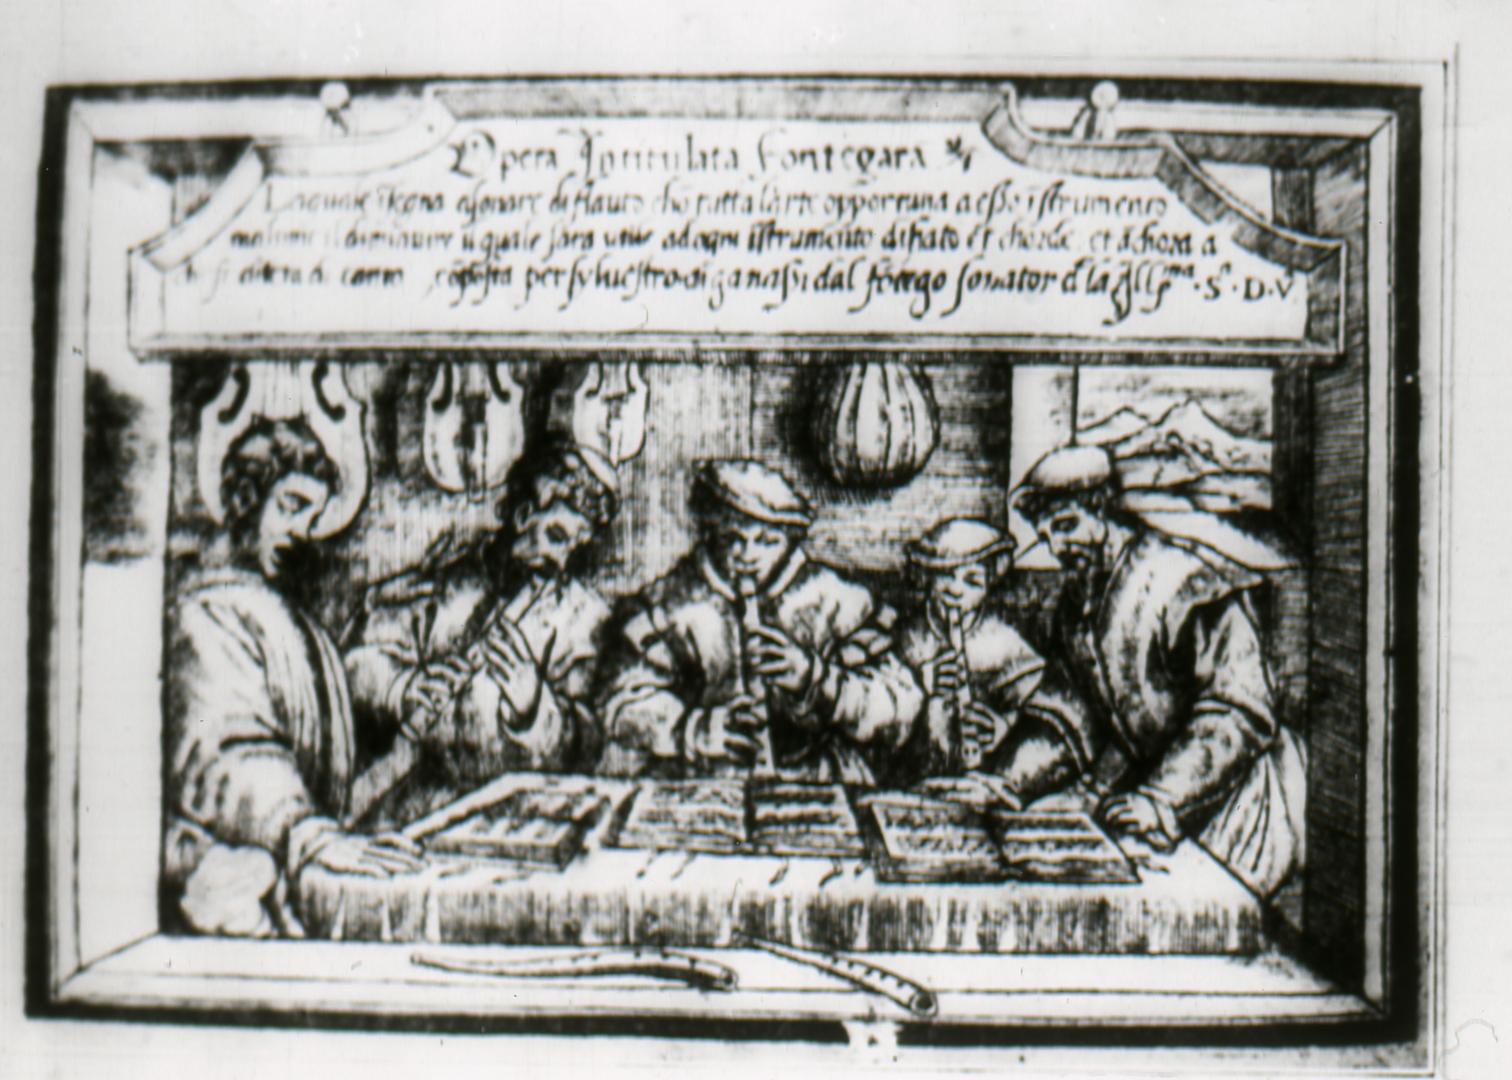 Opera Intitulata Fontegara
Laquale ĩsegna a sonare di flauto chõ tutta l'arte opportuna a esso ĩstrumento
maxime il diminuire il quale sara utile ad ogni ĩstrumento di fiato et chorde et ãchora a
che si dileta di canto cõposta per sylvestro di ganassi dal fõtego sonator d̃ la Illma. Sa. D. Va